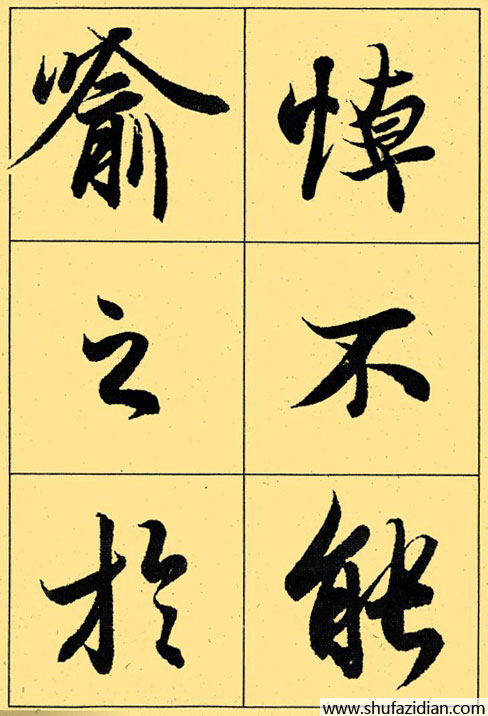 悼不能
喻之於
www.shufazidian.com